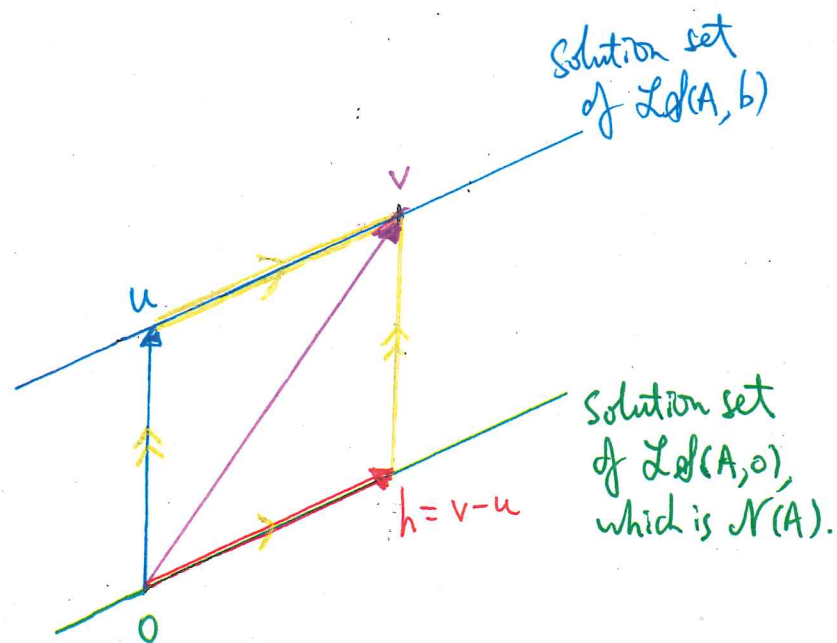 solution set
of LS(A, b)
v
u
solution set
of LS(A, 0),
which is N(A).
h = v - u
0